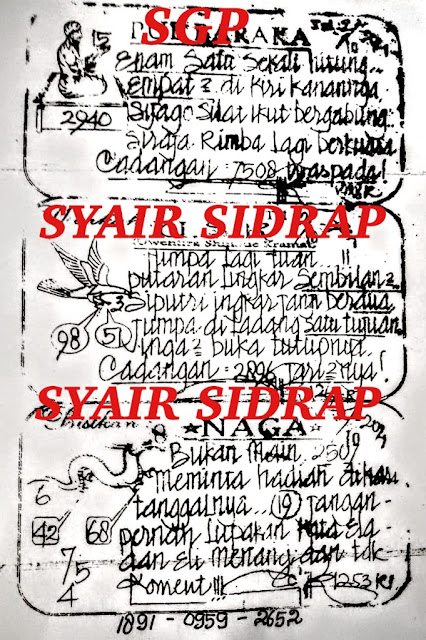 SGP
15
Enam Satu Sekali hitung..
Empat 2 di kiri kanannya
Sijago Silat ikut bergabung
Siraja Rimba lagi berkuasa
2940
Cadangan 7508 Waspada!
SYAIR SIDRAP
Jumpa lagi tuan
putaran lingkar Sembilan 2
3
Siputri ingkar janji berdua
98
51
Jumpa di Padang Satu tujuan
buka tutupnya
Cadangan 2896
SYAIR SIDRAP
Bisikan
NAGA
8
Bukan Main 250
Meminta hadiah
6
tanggalnya.. 19 Jangan-
42
68
pernah Lupakan Kata Ela
dan Eli Menang dan tak
7
5
4
Koment !!!
1253
1891 - 0959 - 2652